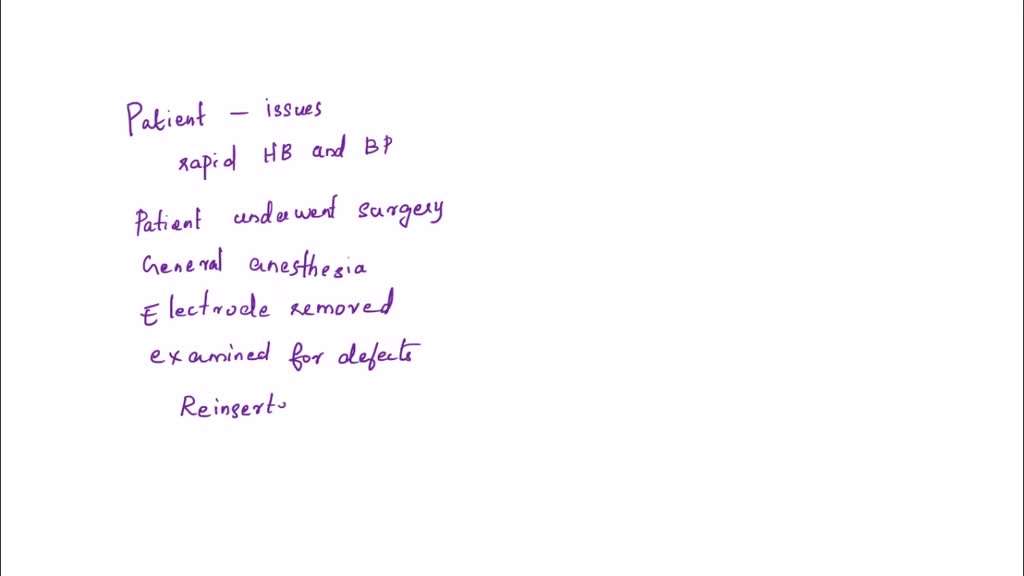 Patient – issues
rapid HB and BP
Patient underwent surgery
General anesthesia
Electrode removed
examined for defects
Reinserto